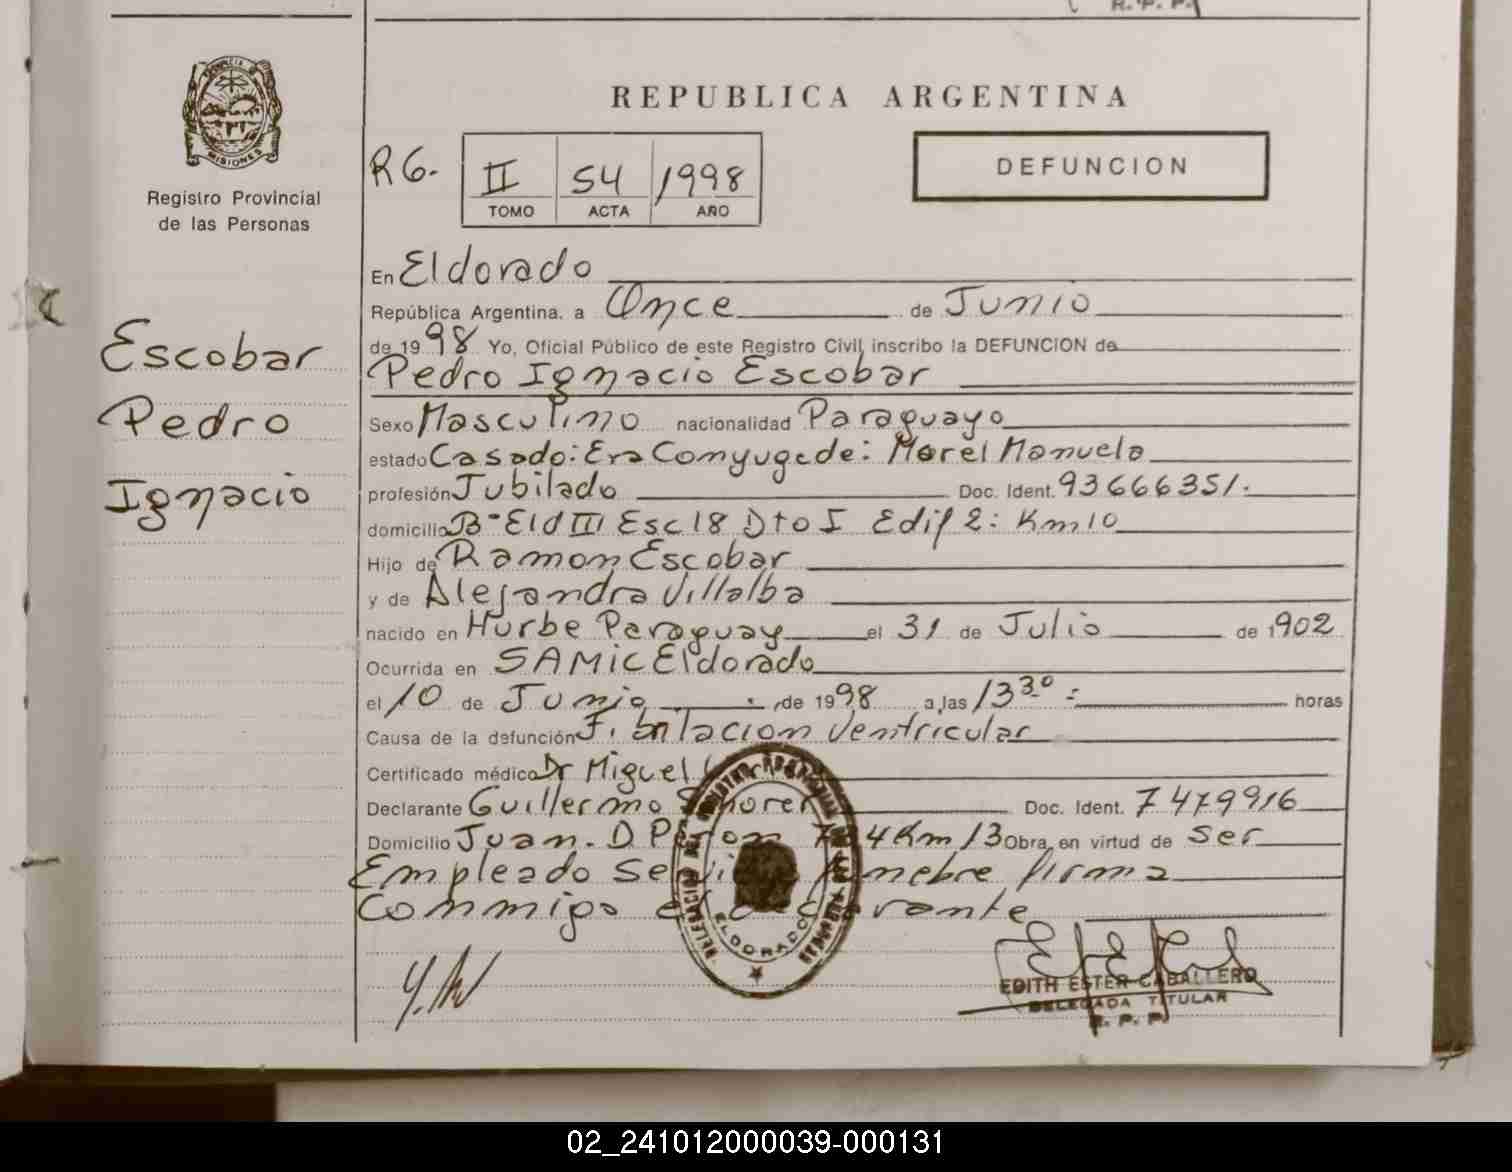 R.P.P.
PROVINCIA DE MISIONES
Registro Provincial
de las Personas
Escobar
Pedro
Ignacio
REPUBLICA ARGENTINA
RG. II 54 1998
TOMO ACTA AÑO
DEFUNCION
En Eldorado
República Argentina, a Once de Junio
de 1998 Yo, Oficial Público de este Registro Civil, inscribo la DEFUNCION de
Pedro Ignacio Escobar
Sexo Masculino nacionalidad Paraguayo
estado Casado: Era Conyugede: Morel Manuela
profesión Jubilado Doc. Ident. 93666351.
domicilio B- Eld III Esc 18 Dto I Edif 2: Km 10
Hijo de Ramon Escobar
y de Alejandra Villalba
nacido en Hurbe Paraguay el 31 de Julio de 1902
Ocurrida en SAMIC Eldorado
el 10 de Junio de 1998 a las 13 30 = horas
Causa de la defunción Fibrilacion Ventricular
Certificado médico Dr Miguel
Declarante Guillermo Doc. Ident. 7479916
Domicilio Juan. D Peron Km 13 Obra en virtud de ser
Empleado Servicio funebre firma
Conmigo el declarante
ELDORADO
EDITH ESTER CABALLERO
DELEGADA TITULAR
R. P. P.
02_241012000039-000131